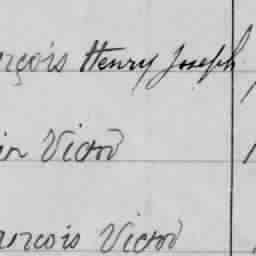 rçois Henry Joseph
in Victor
ançois Victor